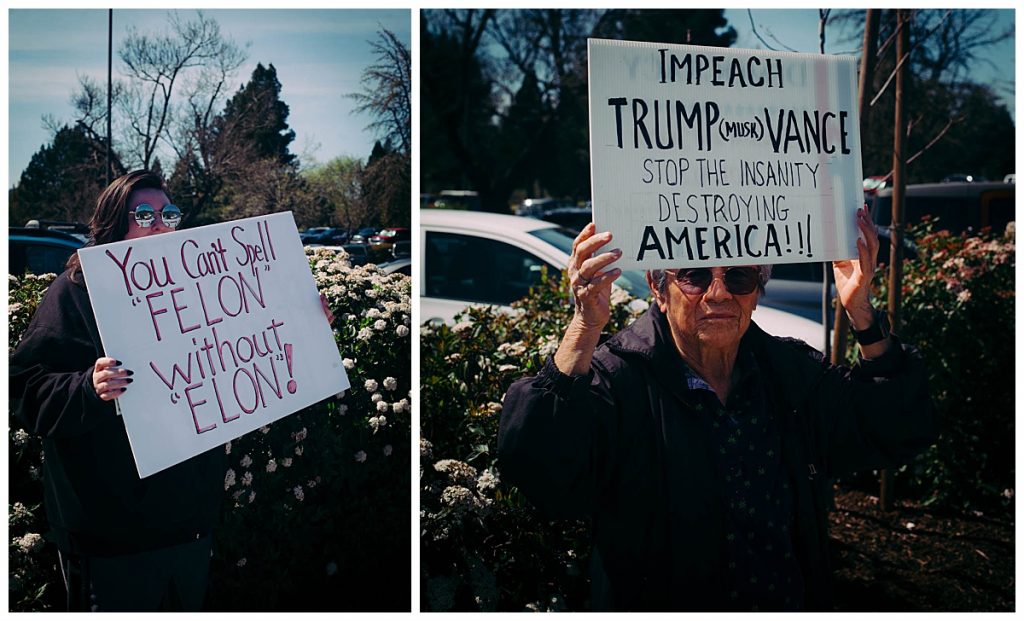 You Can't Spell
"FELON"
without
"ELON"!
IMPEACH
TRUMP (MUSK) VANCE
STOP THE INSANITY
DESTROYING
AMERICA!!!